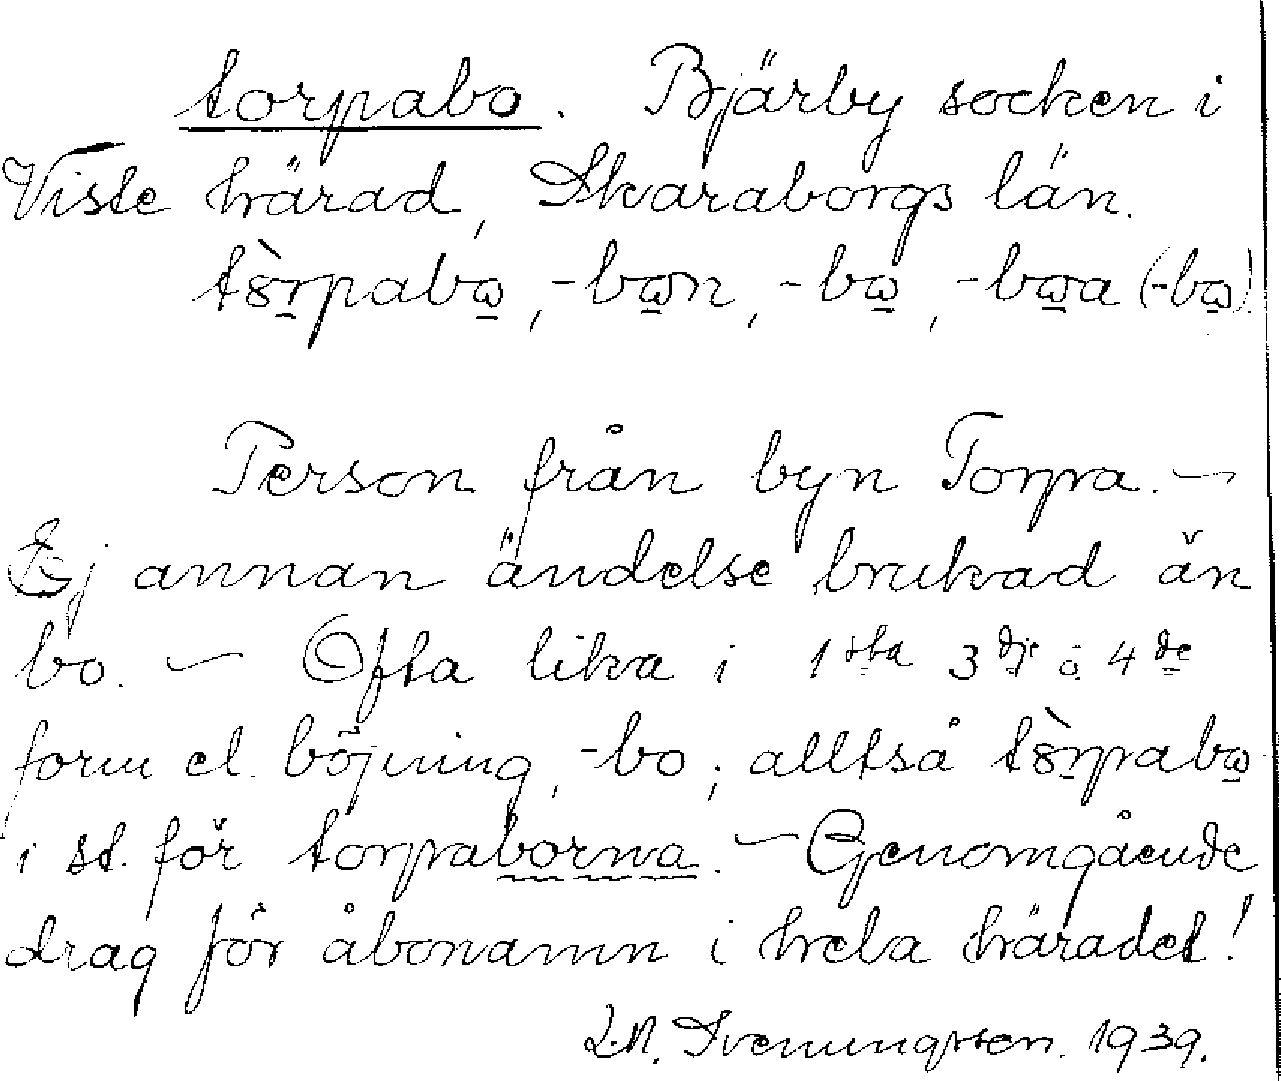 torpabo. Bjärby socken i
Viste härad, Skaraborgs län.
tȣ̀rpabω, -bωn, -bω, -bωa (-bω)
Person från byn Torpa. –
Ej annan ändelse brukad än
bo. – Ofta lika i 1sta 3dje o. 4de
form el. böjning, -bo; alltså tȣ̀rpabω
i st. för torpaborna. – Genomgående
drag för åbonamn i hela häradet!
L.N. Sveningsson. 1939.